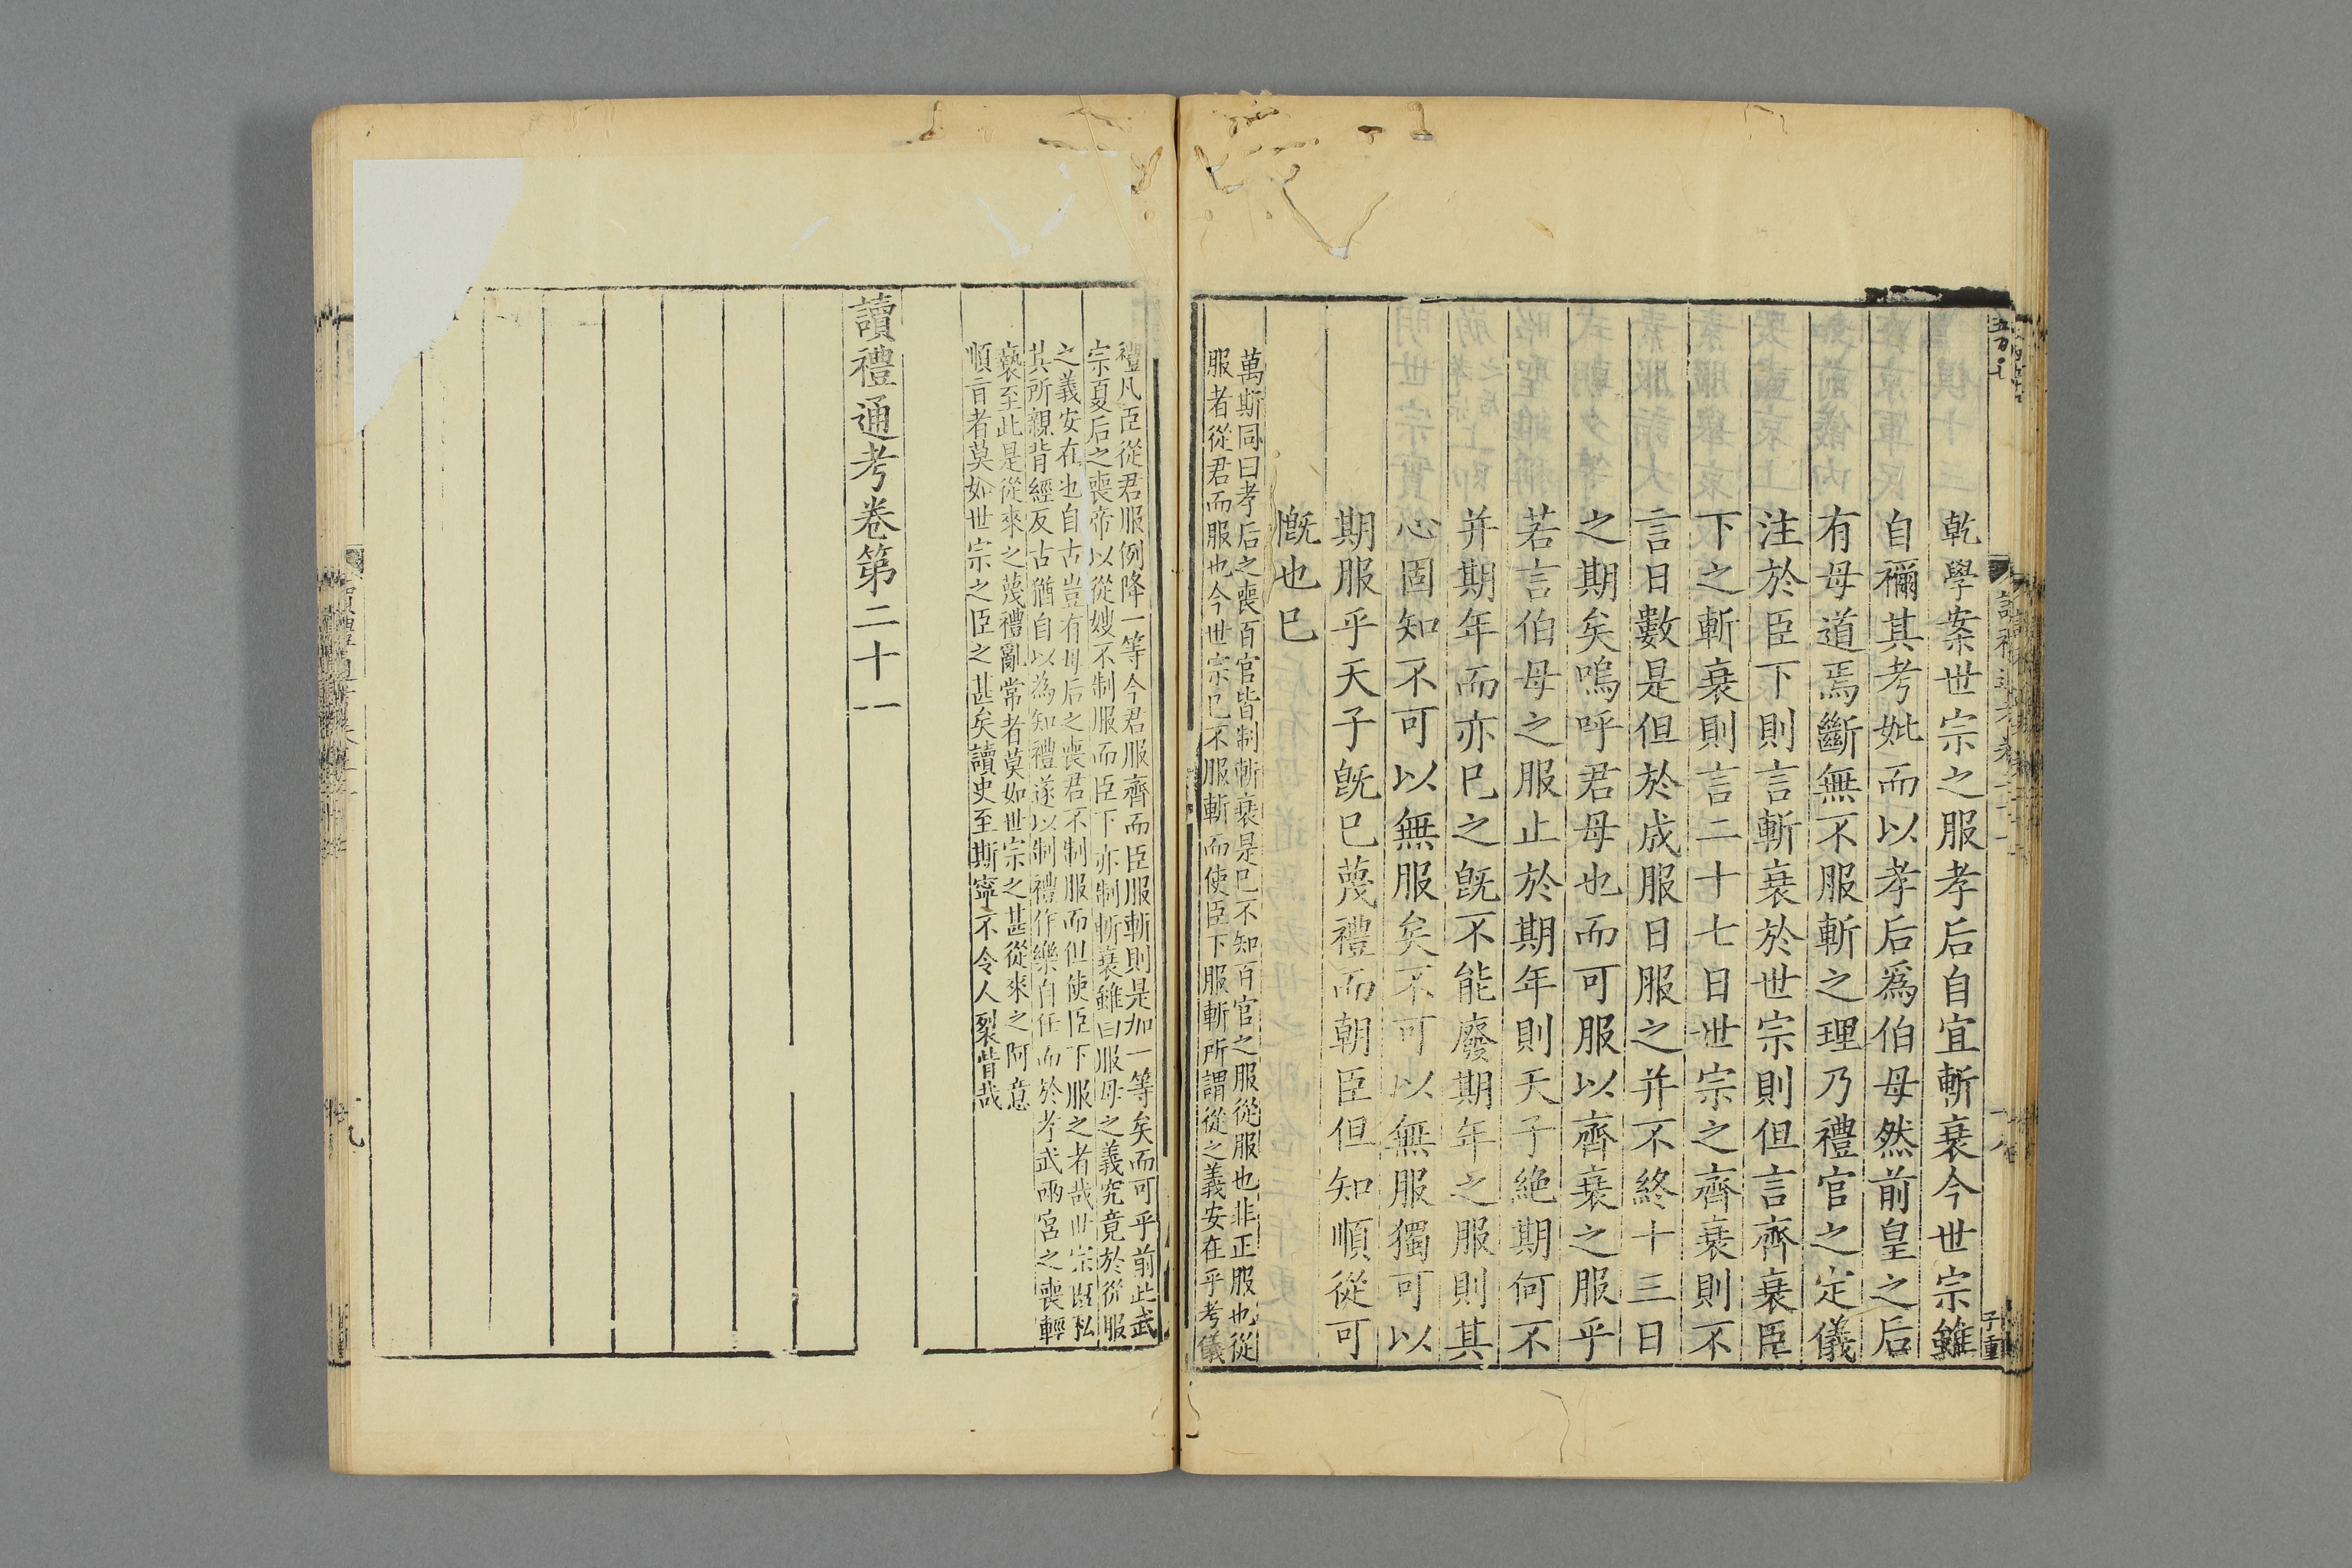 乾學案世宗之服孝后自宜斬衰今世宗雖
自禰其考妣而以孝后爲伯母然前皇之后
有母道焉斷無不服斬之理乃禮官之定儀
注於臣下則言斬衰於世宗則但言齊衰臣
下之斬衰則言二十七日世宗之齊衰則不
言日數是但於成服日服之并不終十三日
之期矣嗚呼君母也而可服以齊衰之服乎
若言伯母之服止於期年則天子絶期何不
并期年而亦已之旣不能廢期年之服則其
心固知不可以無服矣不可以無服獨可以
期服乎天子旣已蔑禮而朝臣但知順從可
慨也已
萬斯同曰孝后之喪百官皆制斬衰是已不知百官之服從服也非正服也從
服者從君而服也今世宗已不服斬而使臣下服斬所謂從之義安在乎考儀
禮凡臣從君服例降一等今君服齊而臣服斬則是加一等矣而可乎前此武
宗夏后之喪帝以從嫂不制服而臣下亦制斬衰雖曰服母之義究竟於從服
之義安在也自古豈有母后之喪君不制服而但使臣下服之者哉世宗旣私
其所親背經反古猶自以為知禮遂以制禮作樂自任而於孝武兩宮之喪輕
褻至此是從來之蔑禮亂常者莫如世宗之甚從來之阿意
順旨者莫如世宗之臣之甚矣讀史至斯寧不令人裂眥哉
讀禮通考卷第二十一